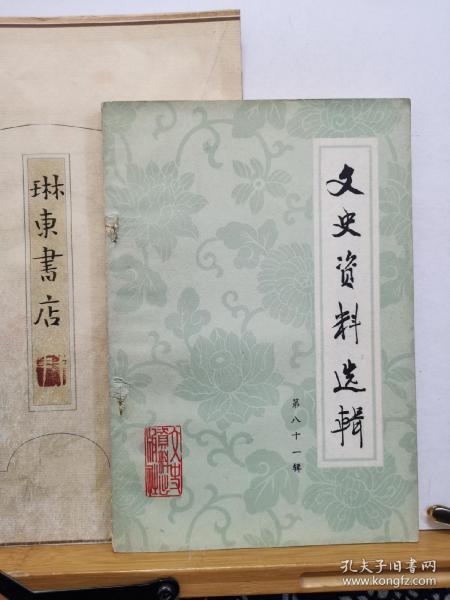 琳東書店
文史资料选辑
第八十一辑
文史資料出版社
孔夫子旧书网
www.kongfz.com